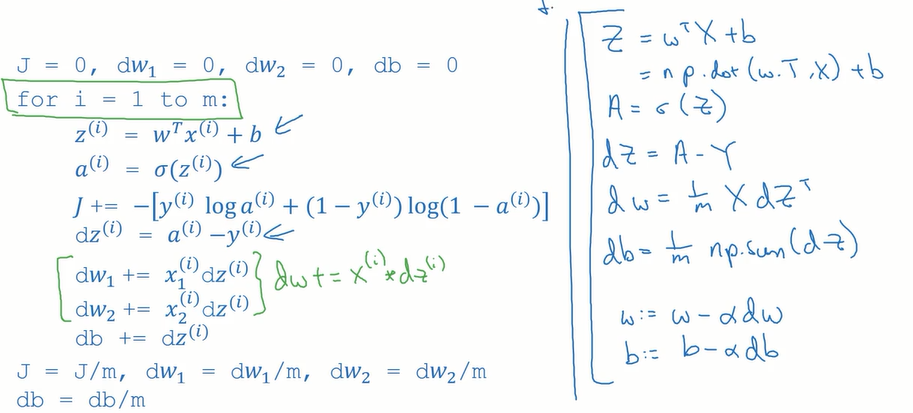 J = 0, dw₁ = 0, dw₂ = 0, db = 0
for i = 1 to m:
z⁽ⁱ⁾ = wᵀx⁽ⁱ⁾ + b
a⁽ⁱ⁾ = σ(z⁽ⁱ⁾)
J += −[y⁽ⁱ⁾ log a⁽ⁱ⁾ + (1 − y⁽ⁱ⁾) log(1 − a⁽ⁱ⁾)]
dz⁽ⁱ⁾ = a⁽ⁱ⁾ − y⁽ⁱ⁾
dw₁ += x₁⁽ⁱ⁾dz⁽ⁱ⁾
dw₂ += x₂⁽ⁱ⁾dz⁽ⁱ⁾
dw += x⁽ⁱ⁾ * dz⁽ⁱ⁾
db += dz⁽ⁱ⁾
J = J/m, dw₁ = dw₁/m, dw₂ = dw₂/m
db = db/m
Z = wᵀX + b
= np.dot(w.T, X) + b
A = σ(Z)
dZ = A − Y
dw = 1/m X dZᵀ
db = 1/m np.sum(dZ)
w := w − αdw
b := b − αdb